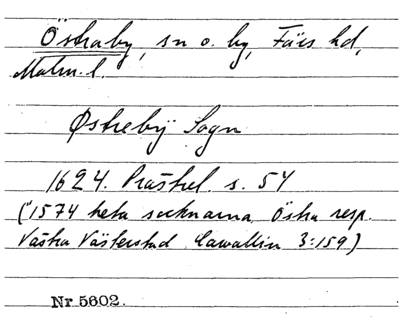 Östraby, sn o. by, Färs hd,
Malm. l.
Østrebÿ Sogn
1624. Prästrel. s. 54
("1574 heta socknarna Östra resp.
Västra Västerstad Cawallin 3:159)
Nr 5602.